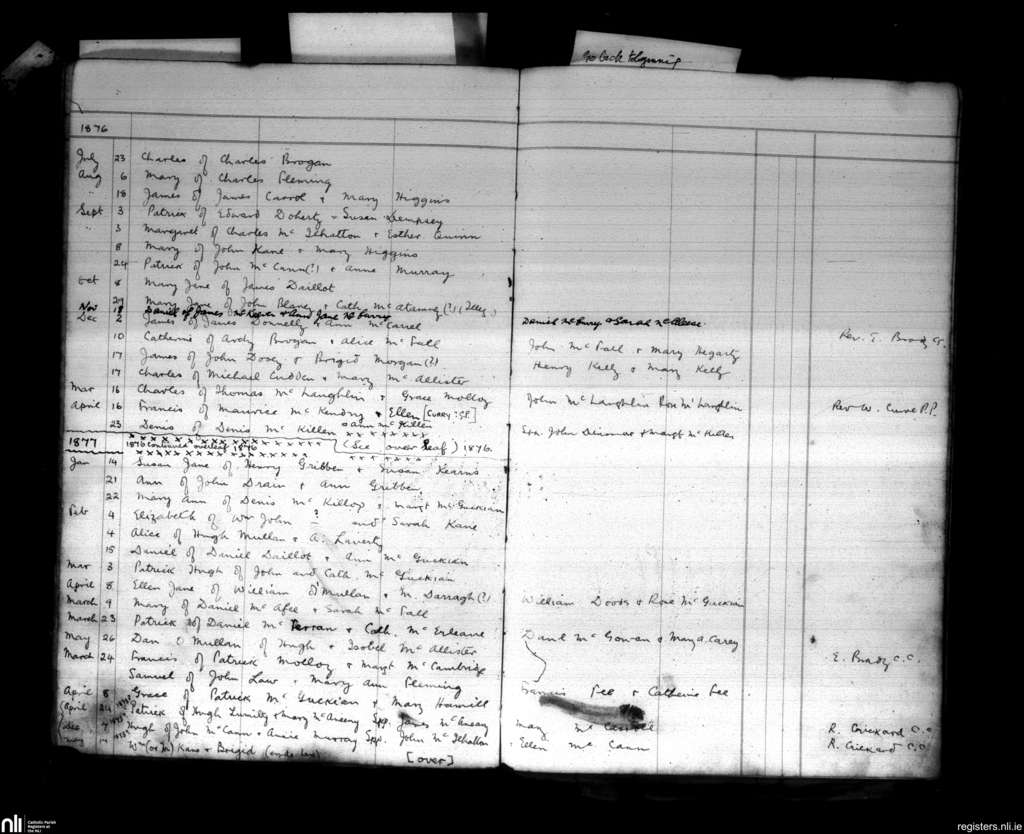 Go back to beginning
1876
July 23 Charles of Charles Brogan
Aug 6 Mary of Charles Fleming
" 18 James of James Carrol & Mary Higgins
Sept 3 Patrick of Edward Doherty & Susan Dempsey
" 3 Margaret of Charles Mc Ilhatton & Esther Quinn
8 Mary of John Kane & Mary Higgins
24 Patrick of John McCann (?) & Anne Murray
Oct 8 Mary Jane of James Daillot
29 Mary Jane of John Blaney & Cath. Mc (?)
Nov 18 Daniel of James McKeever & Ann Jane McGurry Daniel McGurry & Sarah McAleese
Dec 2 James of James Donnelly & Ann McCarrel
10 Catherine of Andy Brogan & Alice McFall John McFall & Mary Hegarty Rev. T. Brady
17 James of John Dosey & Brigid Morgan (?) Henry Kelly & Mary Kelly
17 Charles of Michael Cudden & Mary McAllister
Mar 16 Charles of Thomas McLaughlin & Grace Molloy John McLaughlin Rose McLaughlin
April 16 Francis of Maurice McKendry & Ellen [Curry: S.F.] Rev W. Curoe P.P.
23 Denis of Denis McKillen & Ann McKillen Spn. John & Margt McKillen
1877 1876 continued overleaf 1876 (See over leaf) 1876.
Jan 14 Susan Jane of Henry Gribben & Susan Kearns
21 Ann of John Drain & Ann Gribben
22 Mary Ann of Denis McKillop & Margt McGuckian
Feb 4 Elizabeth of Wm John ? and Sarah Kane
4 Alice of Hugh Mullan & A. Laverty
15 Daniel of Daniel Daillot & Ann McGuckian
Mar 3 Patrick Hugh of John and Cath. McGuckian
April 8 Ellen Jane of William O'Mullan & M. Darragh (?)
March 9 Mary of Daniel McAfee & Sarah McFall William Doors & Rose McGuckian
March 23 Patrick of Daniel McFerran & Cath. McErleane
May 26 Dan. O Mullan of Hugh & Isobel McAllister Danl McGowan & Mary A. Carey
March 24 Francis of Patrick Molloy & Margt McCambridge E. Brady C.C.
Samuel of John Law & Mary Ann Fleming
April 8 Grace of Patrick McGuckian & Mary Hamill Francis Fee & Catherine Fee
(April 24 Patrick of Hugh & Mary McAreavy Spp. James McAreavy Mary McCarroll R. Crickard C.C.
Dec 9 Hugh of John McCann & Annie Murray Spp. John McIlhatton Ellen McCann R. Crickard C.C.
Wm (or Jn) Kane & Brigid
[over]
nli
Catholic Parish
Registers at
the NLI
registers.nli.ie